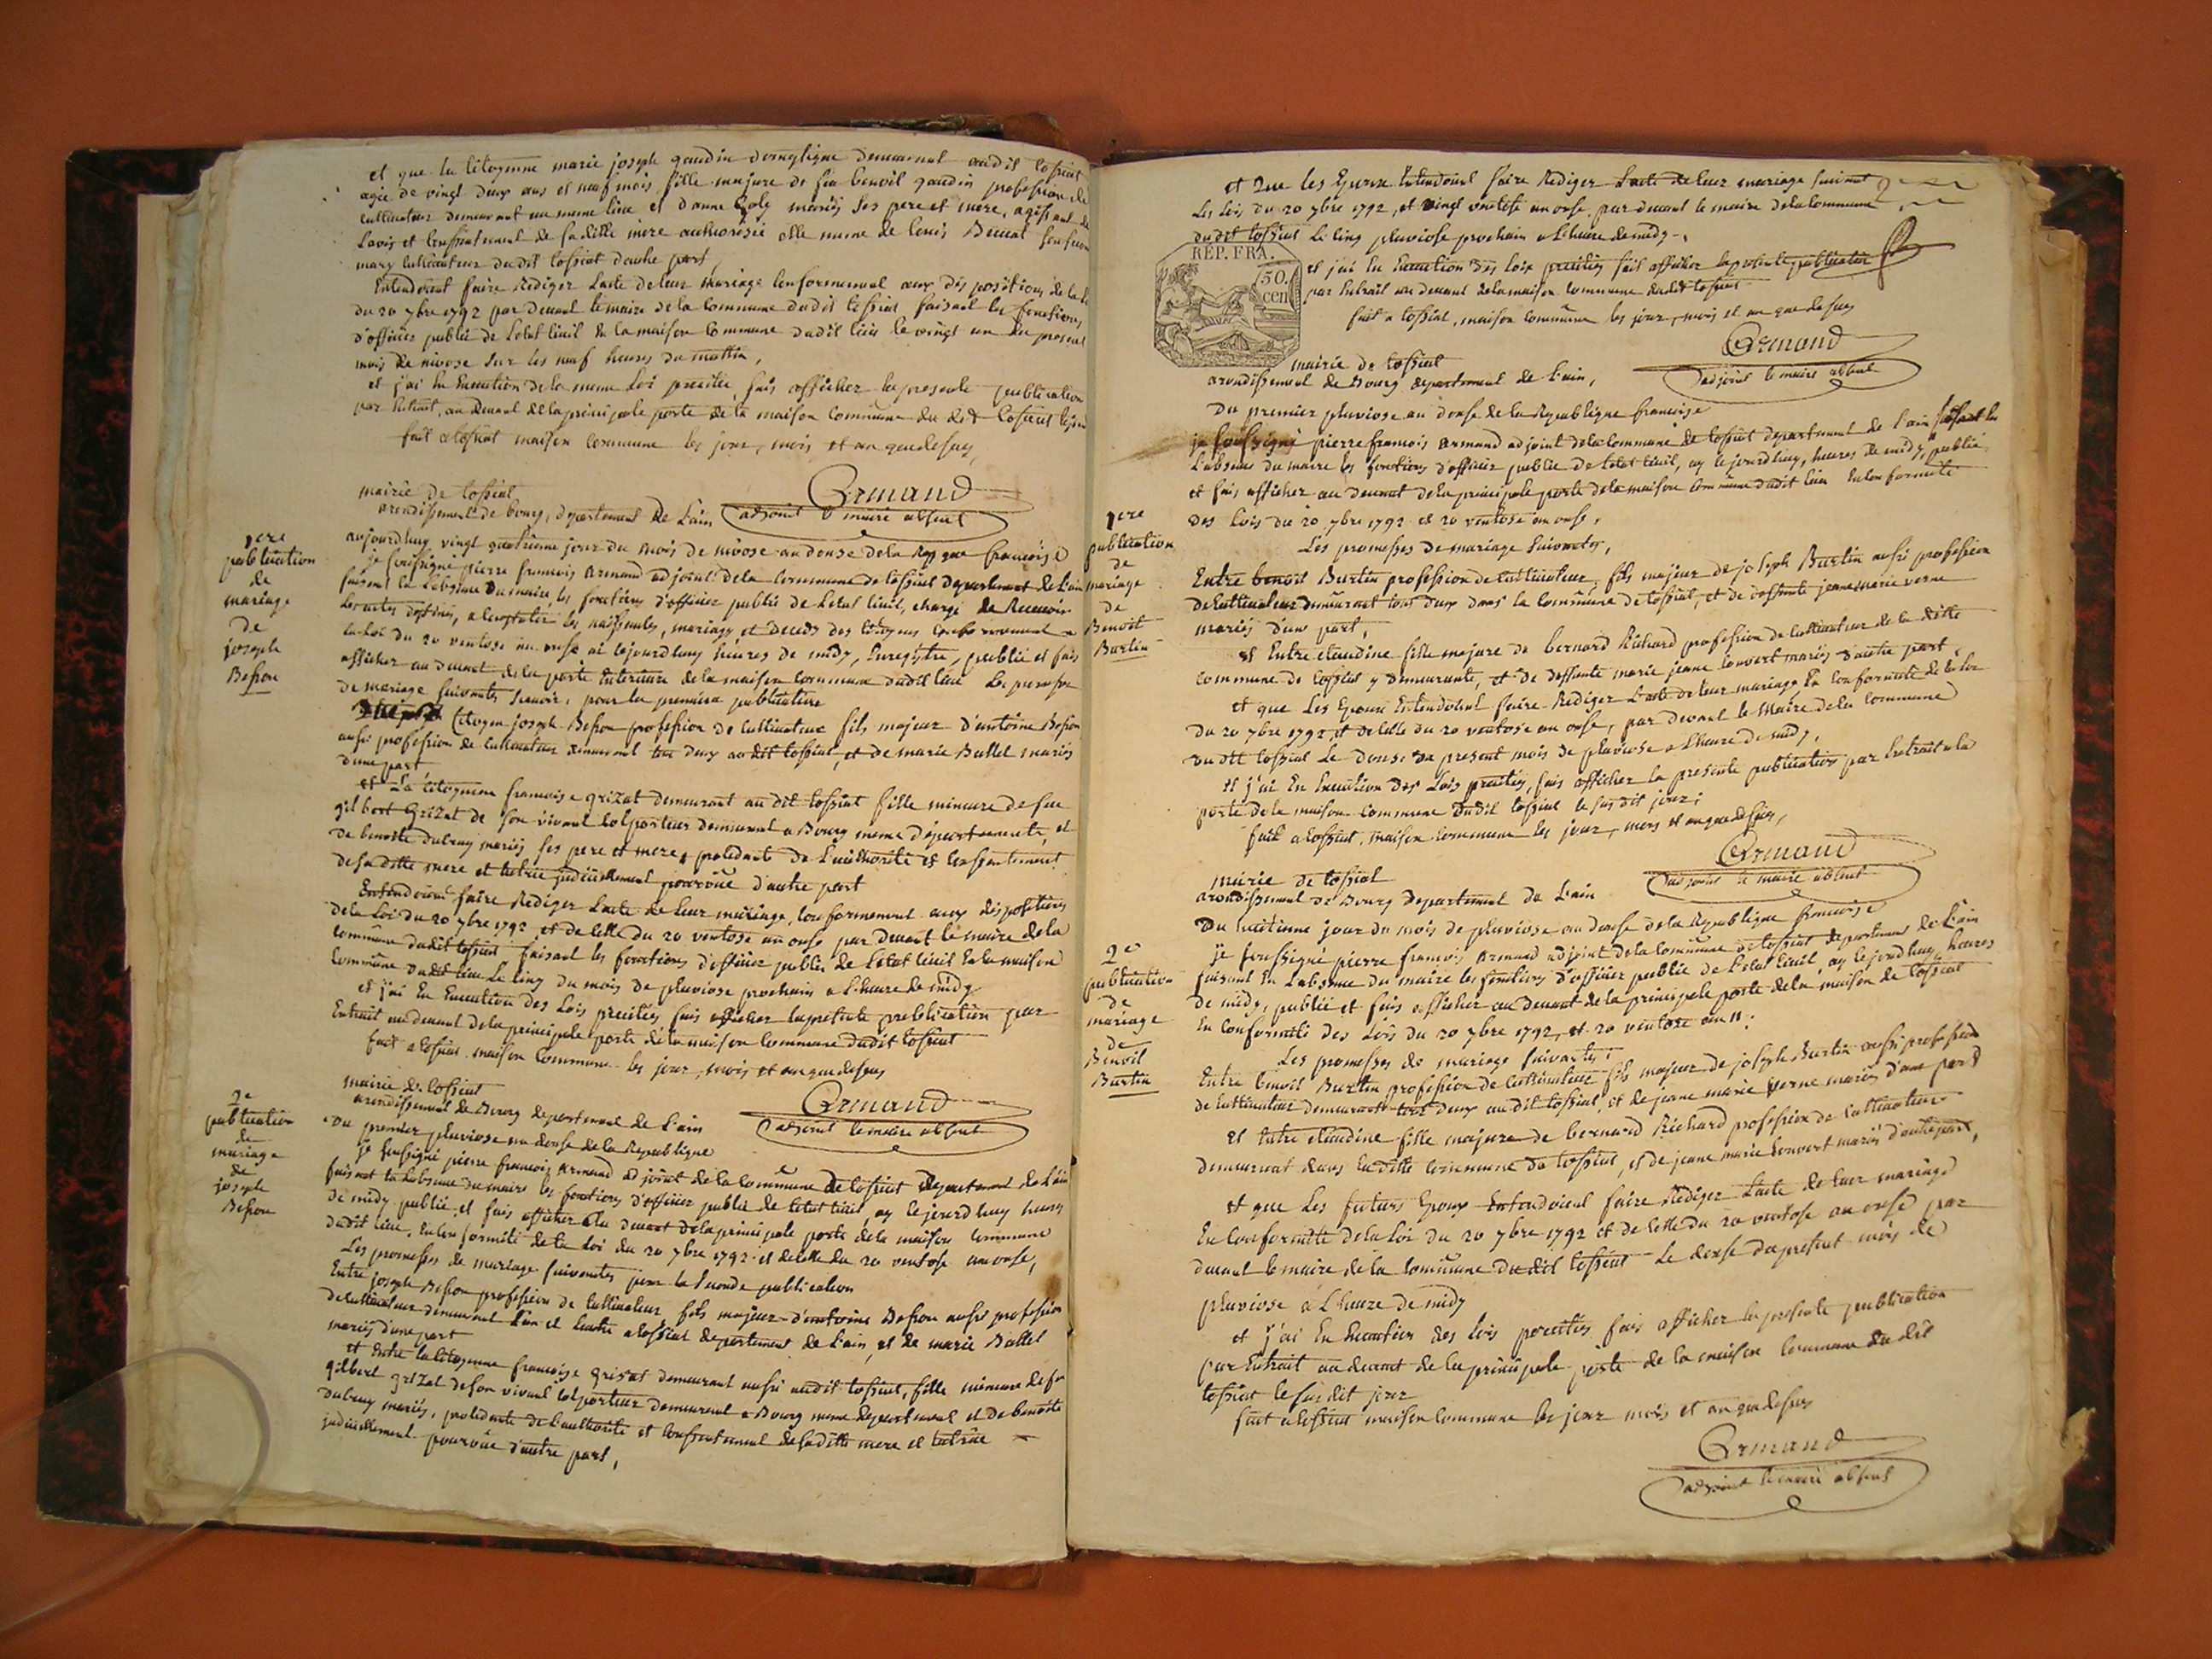 et que la citoyenne marie joseph gaudin demeurant audit tossiat
agée de vingt deux ans et neuf mois fille majeure de feu benoit gaudin profession de
cultivateur demeurant au meme lieu et d'anne mariés ses pere et mere, agissant de
lavis et consentement de sa ditte mere authorisée elle meme de louis son second
mary cultivateur dudit tossiat d'autre part,
Entendoient faire Rediger L'acte de leur mariage conformement aux dispositions de la loi
du 20 7bre 1792 par devant le maire de la commune dudit tossiat faisant les fonctions
d'officier public de L'etat Civil En la maison Commune dudit lieu le vingt un du present
mois de nivose sur les neuf heures du mattin,
et j'ai En Execution de la meme Loi precitée, fais afficher la presente publication
par Extrait, au devant de la principale porte de la maison Commune du dit tossiat
fait a tossiat maison commune les jour, mois et an que dessus,
Armand
adjoint le maire absent
mairie de tossiat
arondissement de bourg, departement de L'ain
1ere
publication
de
mariage
de
joseph
Besson
aujourdhuy vingt quatrieme jour du mois de nivose an douse de la Rep que francoise
je soussigné pierre francois armand adjoint de la commune de tossiat departement de L'ain
faisant En L'absence du maire, les fonctions d'officier public de L'etat Civil, chargé de Recevoir
les actes destinés, a constater les naissances, mariages, et deceds des citoyens conformement a
la loi du 20 ventose an onse ai cejourdhuy heures de midy, Enregistré, publié et fais
afficher au devant de la porte Exterieure de la maison Commune dudit lieu les promesses
de mariage suivantes scavoir, pour la premiere publication
Citoyen joseph Besson profession de cultivateur fils majeur d'antoine Besson
aussi profession de cultivateur demeurant tous deux au dit tossiat, et de marie Ballet mariés
d'une part
et La citoyenne francoise grizat demeurant au dit tossiat fille mineure de feu
gilbert Grizat de son vivant colporteur demeurant a Bourg meme departement, et
de benoite dubruy mariés ses pere et mere, procedante de L'authorité et consentement
de sa ditte mere et tutrice judiciellement pourvüe d'autre part
Entendoient faire Rediger L'acte de leur mariage, conformement aux dispositions
de la Loi du 20 7bre 1792, et de celle du 20 ventose an onse par devant le maire de la
commune dudit tossiat faisant les fonctions d'officier public de L'etat Civil En la maison
Commune dudit lieu Le cinq du mois de pluviose prochain a L'heure de midy
et j'ai En Execution des Lois precitées fais afficher la presente publication par
Extrait au devant de la principale porte de la maison Commune dudit tossiat
fait a tossiat maison Commune les jour, mois et an que dessus
Armand
adjoint le maire absent
mairie de tossiat
arondissement de Bourg departement de L'ain
2e
publication
de
mariage
de
joseph
Besson
du premier pluviose an douse de la Republique
je soussigné pierre francois armand adjoint de la commune de tossiat departement de L'ain
faisant En L'absence du maire les fonctions d'officier public de L'etat Civil, ay cejourdhuy heures
de midy publié et fais afficher au devant de la principale porte de la maison Commune
dudit lieu, En conformité de la Loi du 20 7bre 1792 et de celle du 20 ventose an onse,
Les promesses de mariage suivantes pour la seconde publication
Entre joseph Besson profession de cultivateur, fils majeur d'antoine Besson aussi profession
de cultivateur demeurant L'un et L'autre a tossiat departement de L'ain, et de marie Ballet
mariés d'une part
et Entre la citoyenne francoise Grisat demeurant aussi audit tossiat, fille mineure de feu
gilbert grizat de son vivant colporteur demeurant a Bourg meme departement et de benoite
dubruy mariés, procedante de L'authorité et consentement de sa ditte mere et tutrice
judiciellement pourvüe d'autre part,
et Que les Epoux Entendoient faire Rediger L'acte de leur mariage suivant
les Lois du 20 7bre 1792, et vingt ventose an onse, par devant le maire de la commune
dudit tossiat Le cinq pluviose prochain a L'heure de midy
REP. FRA.
50.
cen
et j'ai En Execution des Loix precitées fais afficher la presente publication
par Extrait au devant de la maison commune dudit tossiat
fait a tossiat, maison commune les jour, mois et an que dessus
Armand
adjoint le maire absent
mairie de tossiat
arondissement de Bourg departement de L'ain,
1ere
publication
de
mariage
de
Benoit
Burtin
Du premier pluviose an douse de la Republique francoise
je soussigné pierre francois armand adjoint de la commune de tossiat departement de l'ain faisant En
L'absence du maire les fonctions d'officier public de L'etat Civil, ay cejourdhuy, heures de midy, publié
et fais afficher au devant de la principale porte de la maison commune dudit lieu En conformité
des Lois du 20 7bre 1792 et 20 ventose an onse,
Les promesses de mariage suivantes,
Entre benoit Burtin profession de cultivateur, fils majeur de joseph Burtin aussi profession
de cultivateur demeurant tous deux dans la commune de tossiat, et de deffunte jeanne marie verne
mariés d'une part,
et Entre claudine fille majeure de bernard Richard profession de cultivateur de la ditte
commune de tossiat y demeurante, et de deffunte marie jeanne convert mariés d'autre part
et que Les Epoux Entendoient faire Rediger L'acte de leur mariage En conformité de la loi
du 20 7bre 1792, et de celle du 20 ventose an onse, par devant le Maire de la commune
du dit tossiat Le douse du present mois de pluviose a L'heure de midy,
et j'ai En Execution des Lois precitées, fais afficher la presente publication par Extrait a la
porte de la maison commune dudit tossiat le susdit jour;
fait a tossiat, maison commune les jour, mois et an que dessus,
Armand
adjoint le maire absent
mairie de tossiat
arondissement de Bourg departement de L'ain
2e
publication
de
mariage
de
Benoit
Burtin
Du huitieme jour du mois de pluviose an douse de la Republique francoise
je soussigné pierre francois armand adjoint de la commune de tossiat departement de L'ain
faisant En L'absence du maire les fonctions d'officier public de L'etat Civil, ay cejourdhuy heures
de midy, publié et fais afficher au devant de la principale porte de la maison de tossiat
En conformité des Lois du 20 7bre 1792, et 20 ventose an 11:
Les promesses de mariage suivantes:
Entre benoit Burtin profession de cultivateur fils majeur de joseph Burtin aussi profession
de cultivateur demeurant tous deux au dit tossiat, et de jeanne marie verne mariés d'une part
et Entre claudine fille majeure de bernard Richard profession de cultivateur
demeurant dans la ditte commune de tossiat, et de jeanne marie convert mariés d'autre part,
et que Les futurs Epoux Entendoient faire Rediger L'acte de leur mariage
En conformité de la Loi du 20 7bre 1792 et de celle du 20 ventose an onse par
devant le maire de la commune dudit tossiat Le douse du present mois de
pluviose a L'heure de midy
et j'ai En Execution des Lois precitées fais afficher la presente publication
par Extrait au devant de la principale porte de la maison commune du dit
tossiat le sus dit jour
fait a tossiat maison commune les jour mois et an que dessus
Armand
adjoint le maire absent